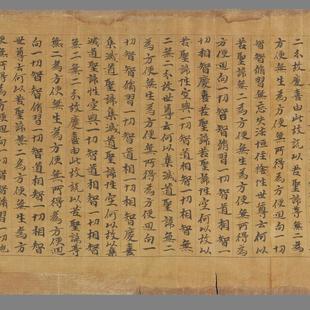 二分故慶喜由此故說以苦聖諦等無二為
方便無生為方便無所得為方便迴向一切
智智脩習無忘失法恒住捨性世尊云何以
苦聖諦無二為方便無生為方便無所得為
方便迴向一切智智脩習一切智道相智一
切相智慶喜苦聖諦苦聖諦性空何以故以
苦聖諦性空與一切智道相智一切相智無
二無二分故世尊云何以集滅道聖諦無二
為方便無生為方便無所得為方便迴向一
切智智脩習一切智道相智一切相智慶喜
集滅道聖諦集滅道聖諦性空何以故以集
滅道聖諦性空與一切智道相智一切相智
無二無二分故慶喜由此故說以苦聖諦等
無二為方便無生為方便無所得為方便迴
向一切智智脩習一切智道相智一切相智
世尊云何以苦聖諦無二為方
便無生為方便無所得為方便